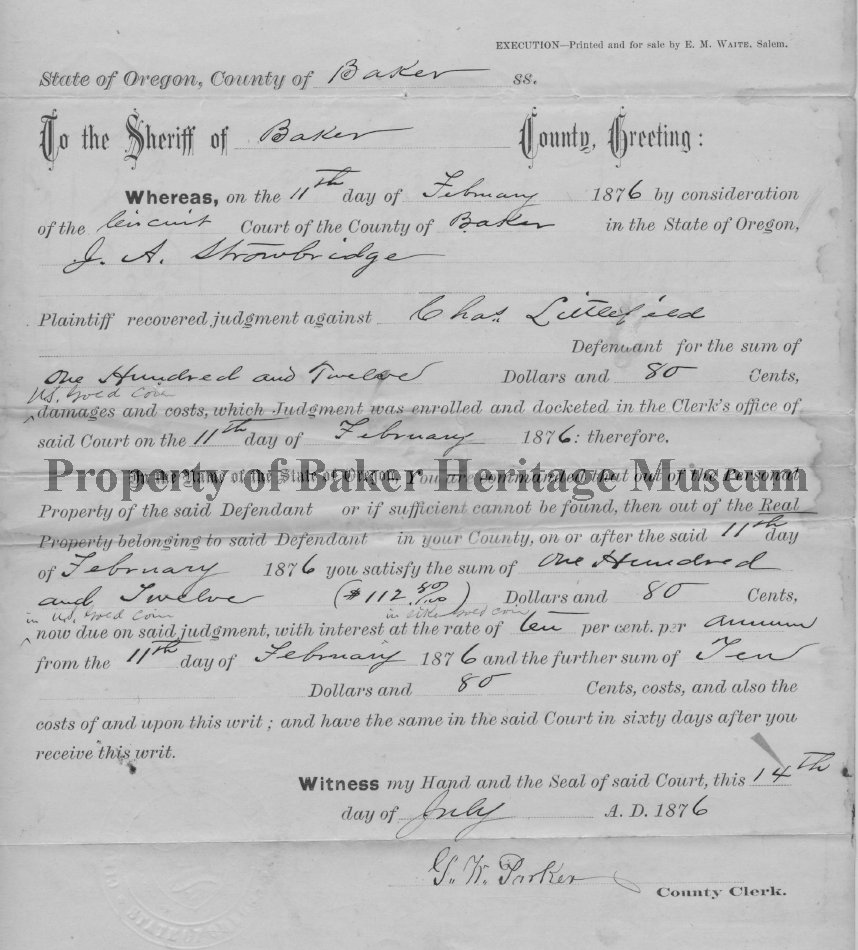 EXECUTION—Printed and for sale by E. M. WAITE, Salem.
State of Oregon, County of Baker ss.
To the Sheriff of Baker County, Greeting:
Whereas, on the 11th day of February 1876 by consideration
of the Circuit Court of the County of Baker in the State of Oregon,
J. A. Strowbridge
Plaintiff recovered judgment against Chas. Littlefield
Defendant for the sum of
One Hundred and Twelve Dollars and 80 Cents,
U.S. Gold Coin
damages and costs, which Judgment was enrolled and docketed in the Clerk's office of
said Court on the 11th day of February 1876: therefore.
Property of Baker Heritage Museum
In the Name of the State of Oregon, You are commanded that out of the Personal
Property of the said Defendant or if sufficient cannot be found, then out of the Real
Property belonging to said Defendant in your County, on or after the said 11th day
of February 1876 you satisfy the sum of One Hundred
and Twelve ($112 80/100) Dollars and 80 Cents,
in U.S. Gold Coin in like Gold Coin
now due on said judgment, with interest at the rate of ten per cent. per annum
from the 11th day of February 1876 and the further sum of Ten
Dollars and 80 Cents, costs, and also the
costs of and upon this writ; and have the same in the said Court in sixty days after you
receive this writ.
Witness my Hand and the Seal of said Court, this 14th
day of July A. D. 1876
G. W. Parker
County Clerk.